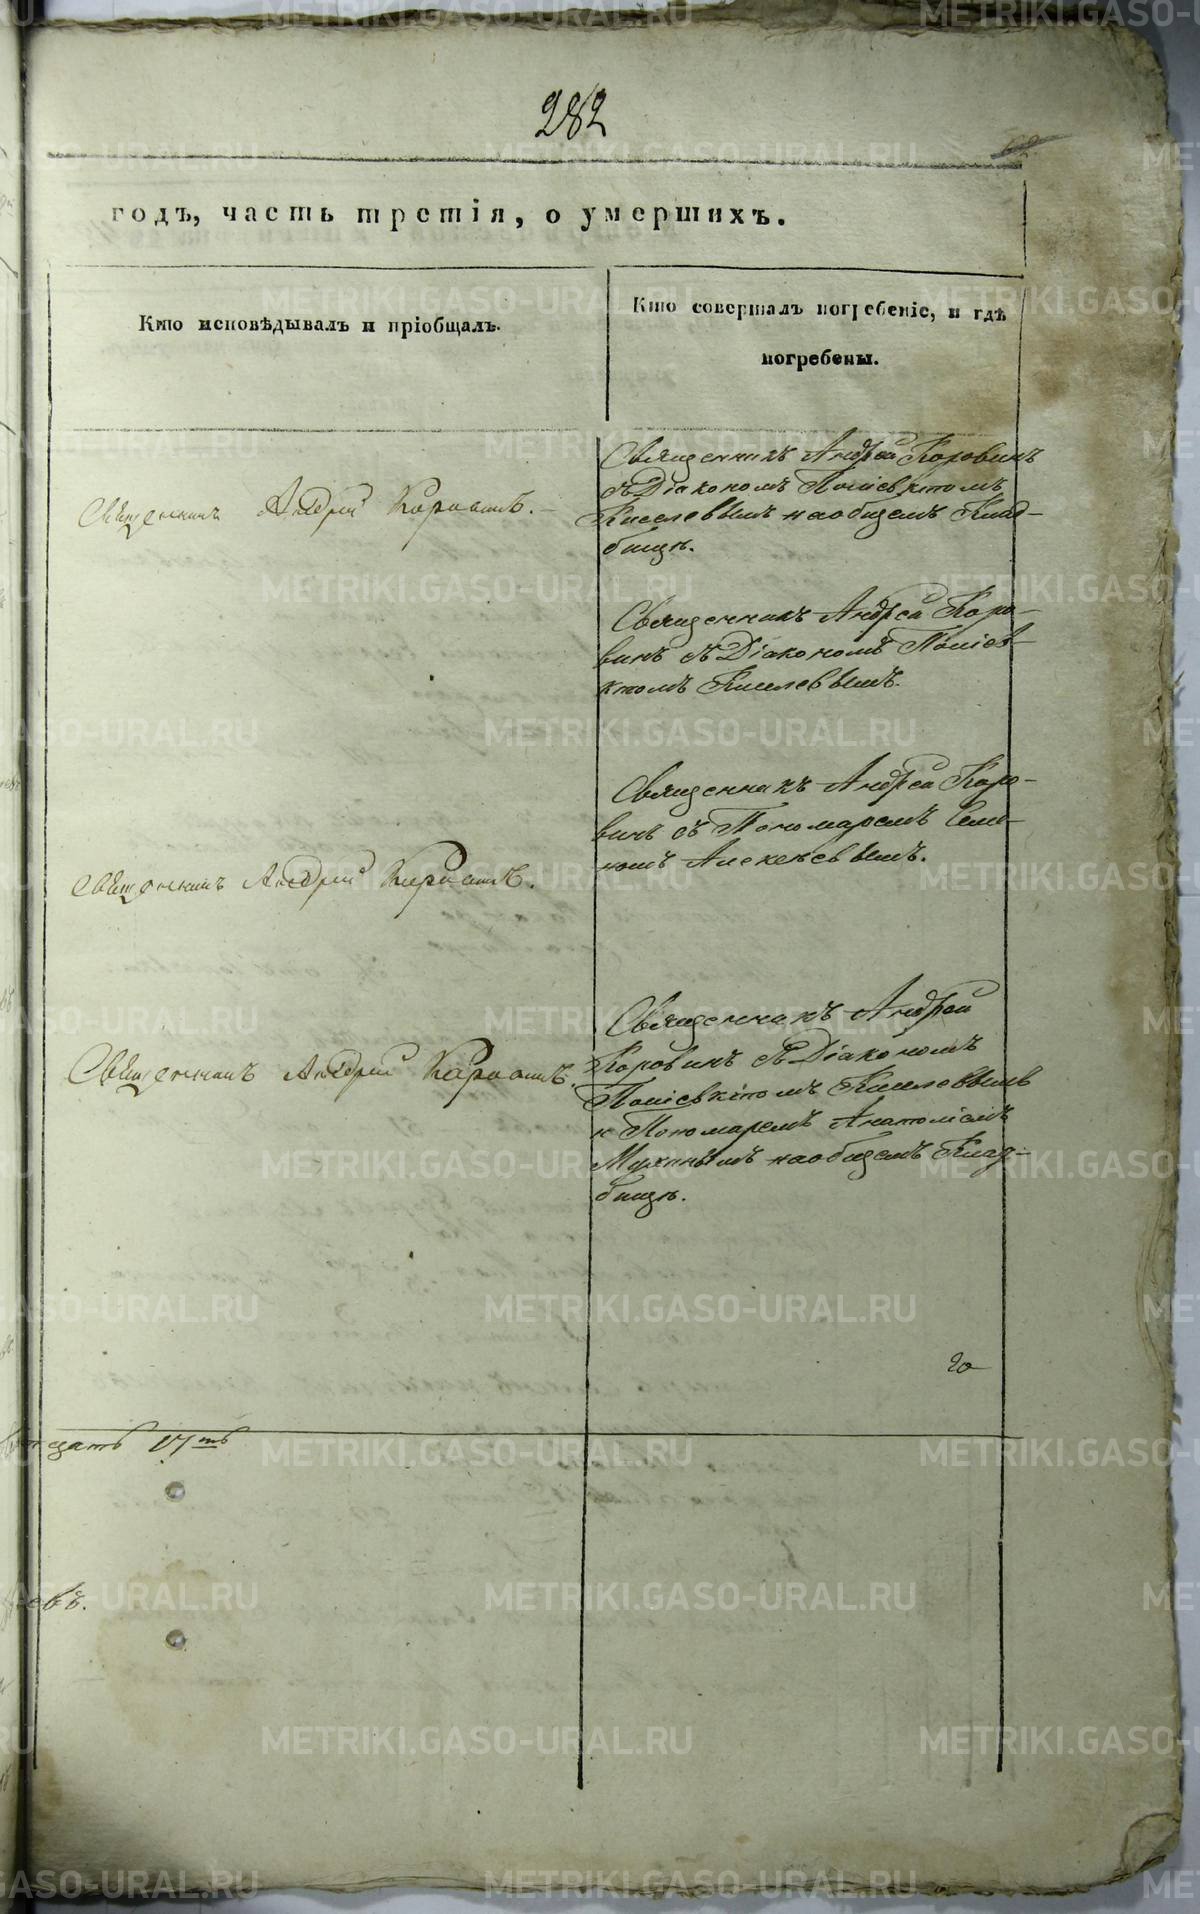 282
годъ, часть третія, о умершихъ.
Кто исповѣдывалъ и пріобщалъ.
Кто совершалъ погребеніе, и гдѣ
погребены.
Священникъ Андрей Коровинъ.
Священникъ Андрей Коровинъ
съ Діакономъ Поліевктомъ
Киселевымъ на общемъ Клад-
бищѣ.
Священникъ Андрей Коро-
винъ съ Діакономъ Поліев-
ктомъ Киселевымъ.
Священникъ Андрей Коровинъ.
Священникъ Андрей Коро-
винъ съ Пономаремъ
Алексѣевымъ.
Священникъ Андрей Коровинъ.
Священникъ Андрей
Коровинъ съ Діакономъ
Поліевктомъ Киселевымъ
и Пономаремъ Анатоліемъ
на общемъ Клад-
бищѣ.
METRIKI.GASO-URAL.RU